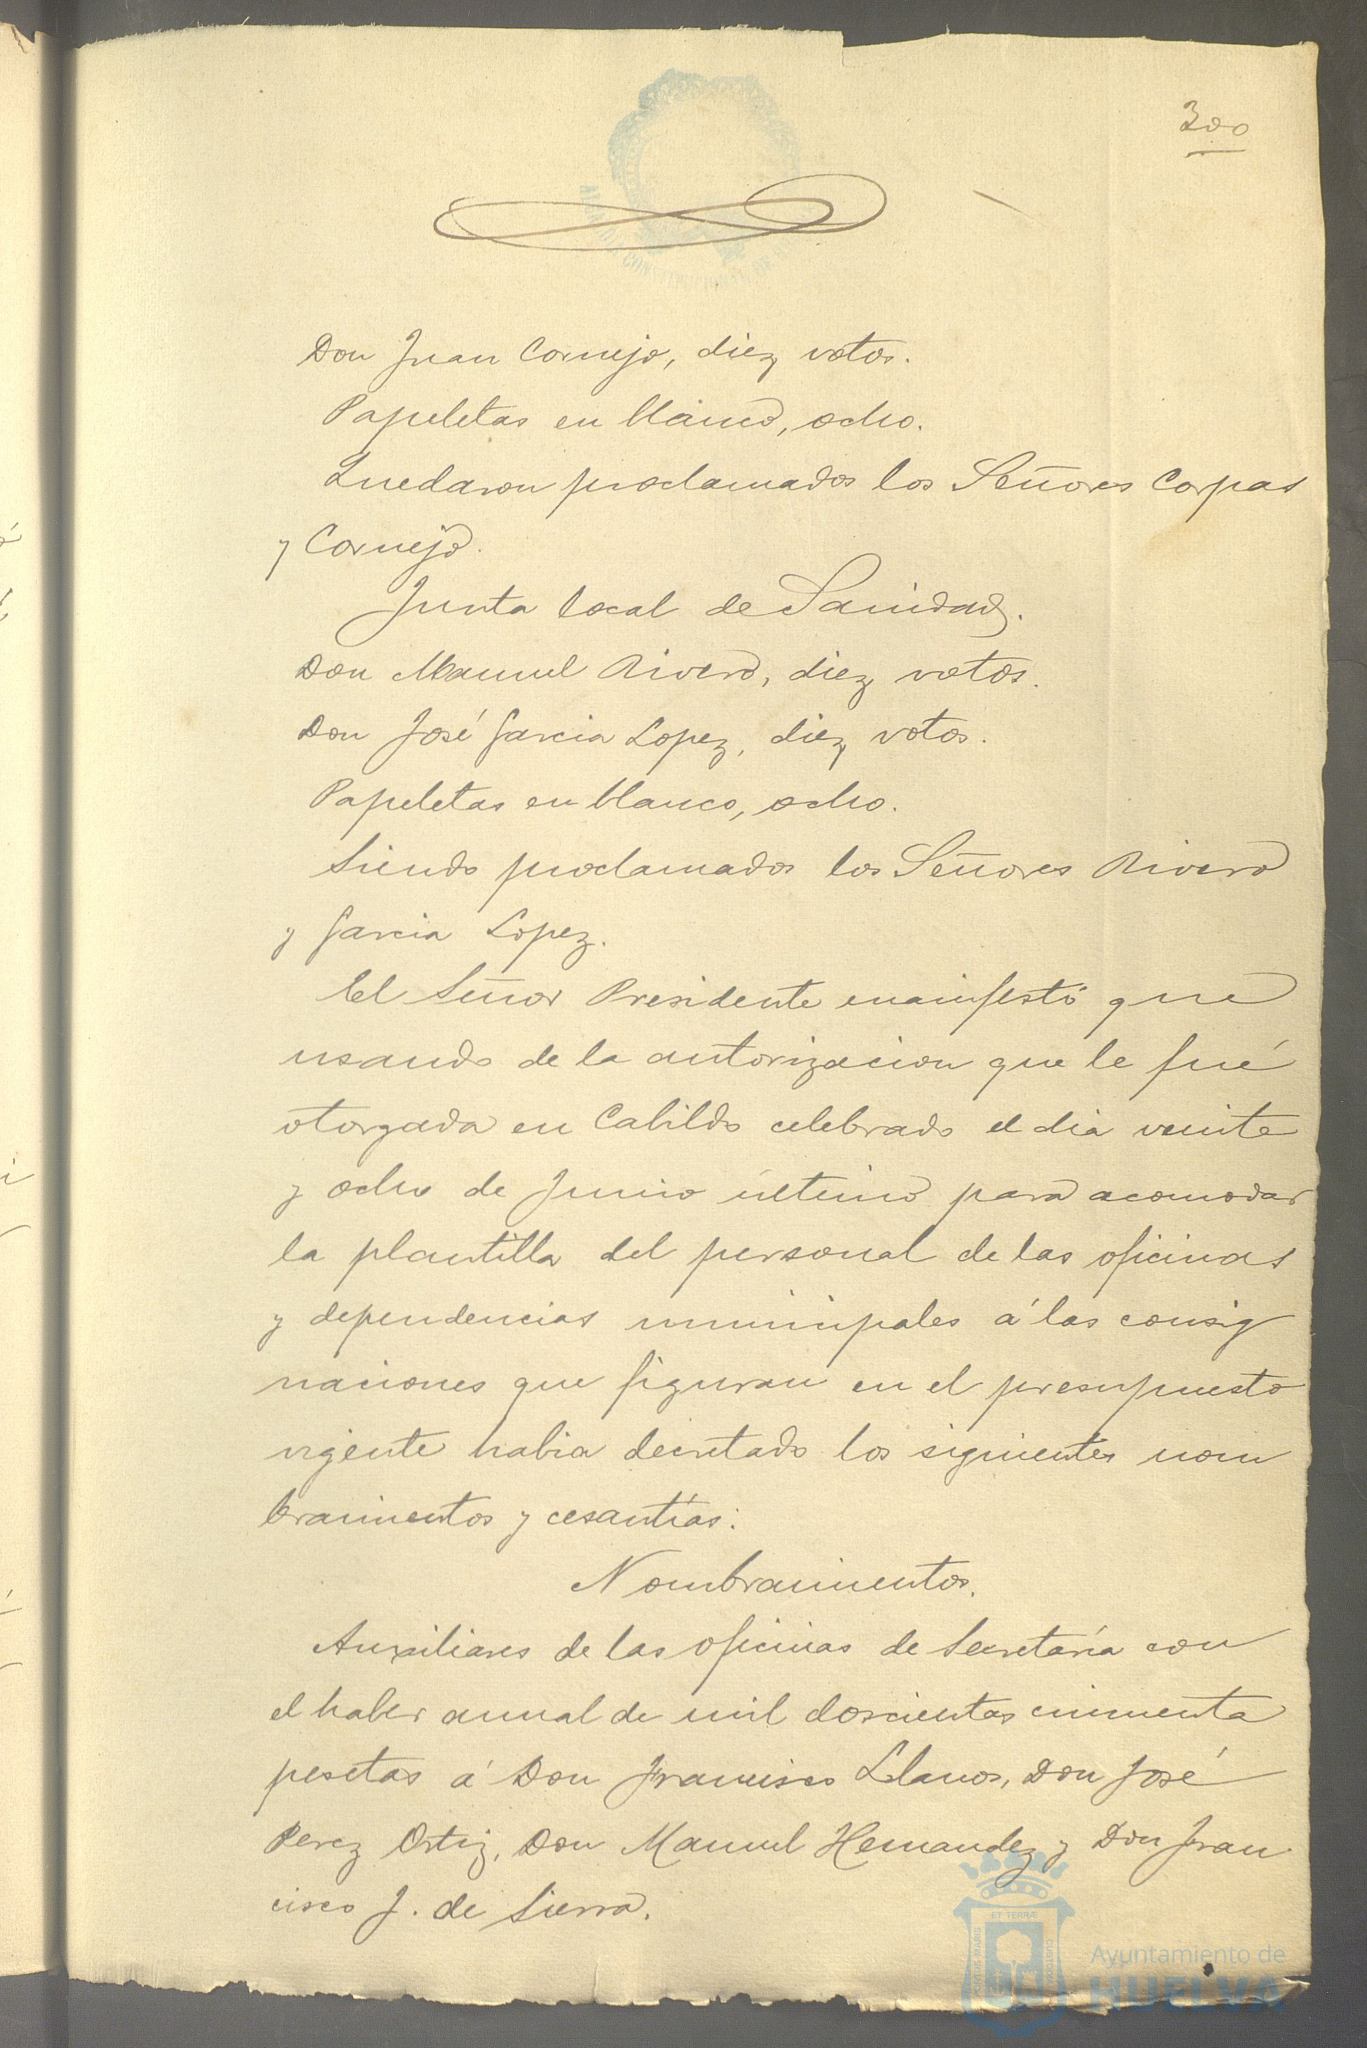 300
Don Juan Cornejo, diez votos.
Papeletas en blanco, ocho.
Quedaron proclamados los Señores Corpas
y Cornejo.
Junta local de Sanidad.
Don Manuel Rivero, diez votos.
Don José Garcia Lopez, diez votos.
Papeletas en blanco, ocho.
Siendo proclamados los Señores Rivero
y Garcia Lopez.
El Señor Presidente manifestó que
usando de la autorizacion que le fué
otorgada en Cabildo celebrado el dia veinte
y ocho de Junio último para acomodar
la plantilla del personal de las oficinas
y dependencias municipales á las consig
naciones que figuran en el presupuesto
vigente habia decretado los siguientes nom
bramientos y cesantías:
Nombramientos.
Auxiliares de las oficinas de Secretaría con
el haber anual de mil doscientas cincuenta
pesetas á Don Francisco Llanos, Don José
Perez Ortiz, Don Manuel Hernandez y Don Fran
cisco J. de Sierra.
Ayuntamiento de
HUELVA